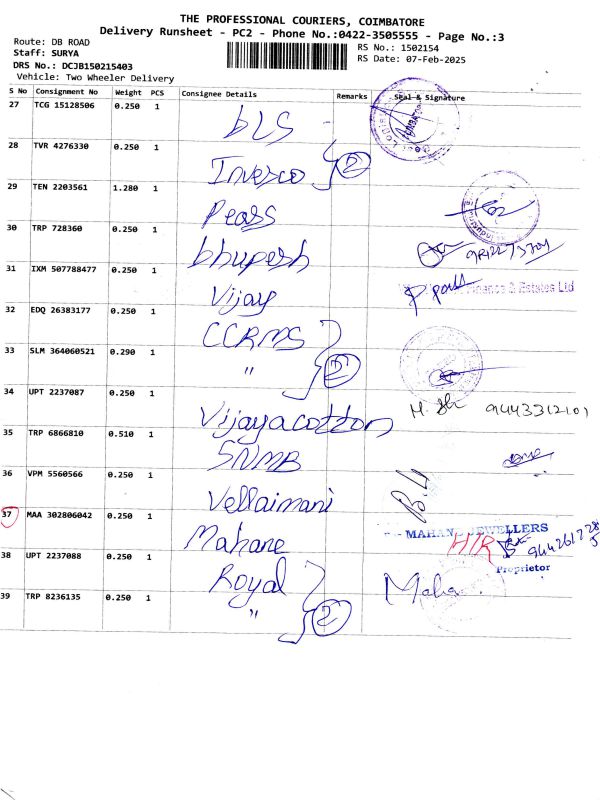 THE PROFESSIONAL COURIERS, COIMBATORE
Delivery Runsheet - PC2 - Phone No.:0422-3505555 - Page No.:3
Route: DB ROAD
RS No.: 1502154
Staff: SURYA
RS Date: 07-Feb-2025
DRS No.: DCJB150215403
Vehicle: Two Wheeler Delivery
S No Consignment No Weight PCS Consignee Details Remarks Seal & Signature
27 TCG 15128506 0.250 1 bLS
28 TVR 4276330 0.250 1 Invesco 2
29 TEN 2203561 1.280 1 Peass
30 TRP 728360 0.250 1 bhupesh
31 IXM 507788477 0.250 1 Vijay Finance & Estates Ltd
32 EDQ 26383177 0.250 1 CCRMS
33 SLM 364060521 0.290 1 " 2
34 UPT 2237087 0.250 1 Vijayacotton
35 TRP 6866810 0.510 1 SNMB
36 VPM 5560566 0.250 1 Vellaimani
37 MAA 302806042 0.250 1 Mahane MAHAN JEWELLERS
Proprietor
38 UPT 2237088 0.250 1 Royal Maha
39 TRP 8236135 0.250 1 " 2